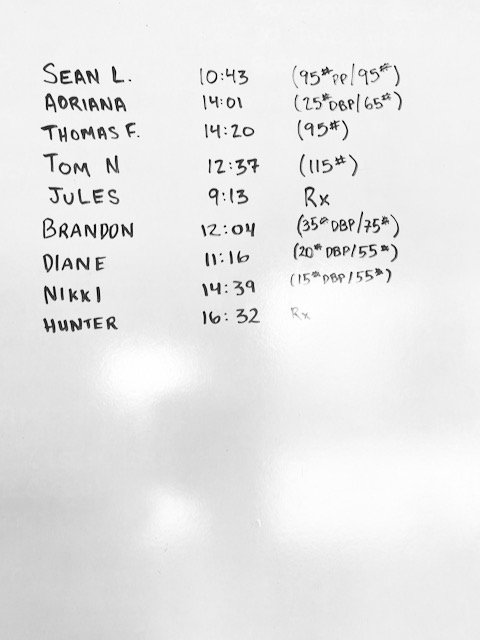 SEAN L. 10:43 (95# PP/95#)
ADRIANA 14:01 (25# DBP/65#)
THOMAS F. 14:20 (95#)
TOM N 12:37 (115#)
JULES 9:13 Rx
BRANDON 12:04 (35# DBP/75#)
DIANE 11:16 (20# DBP/55#)
NIKKI 14:39 (15# DBP/55#)
HUNTER 16:32 Rx